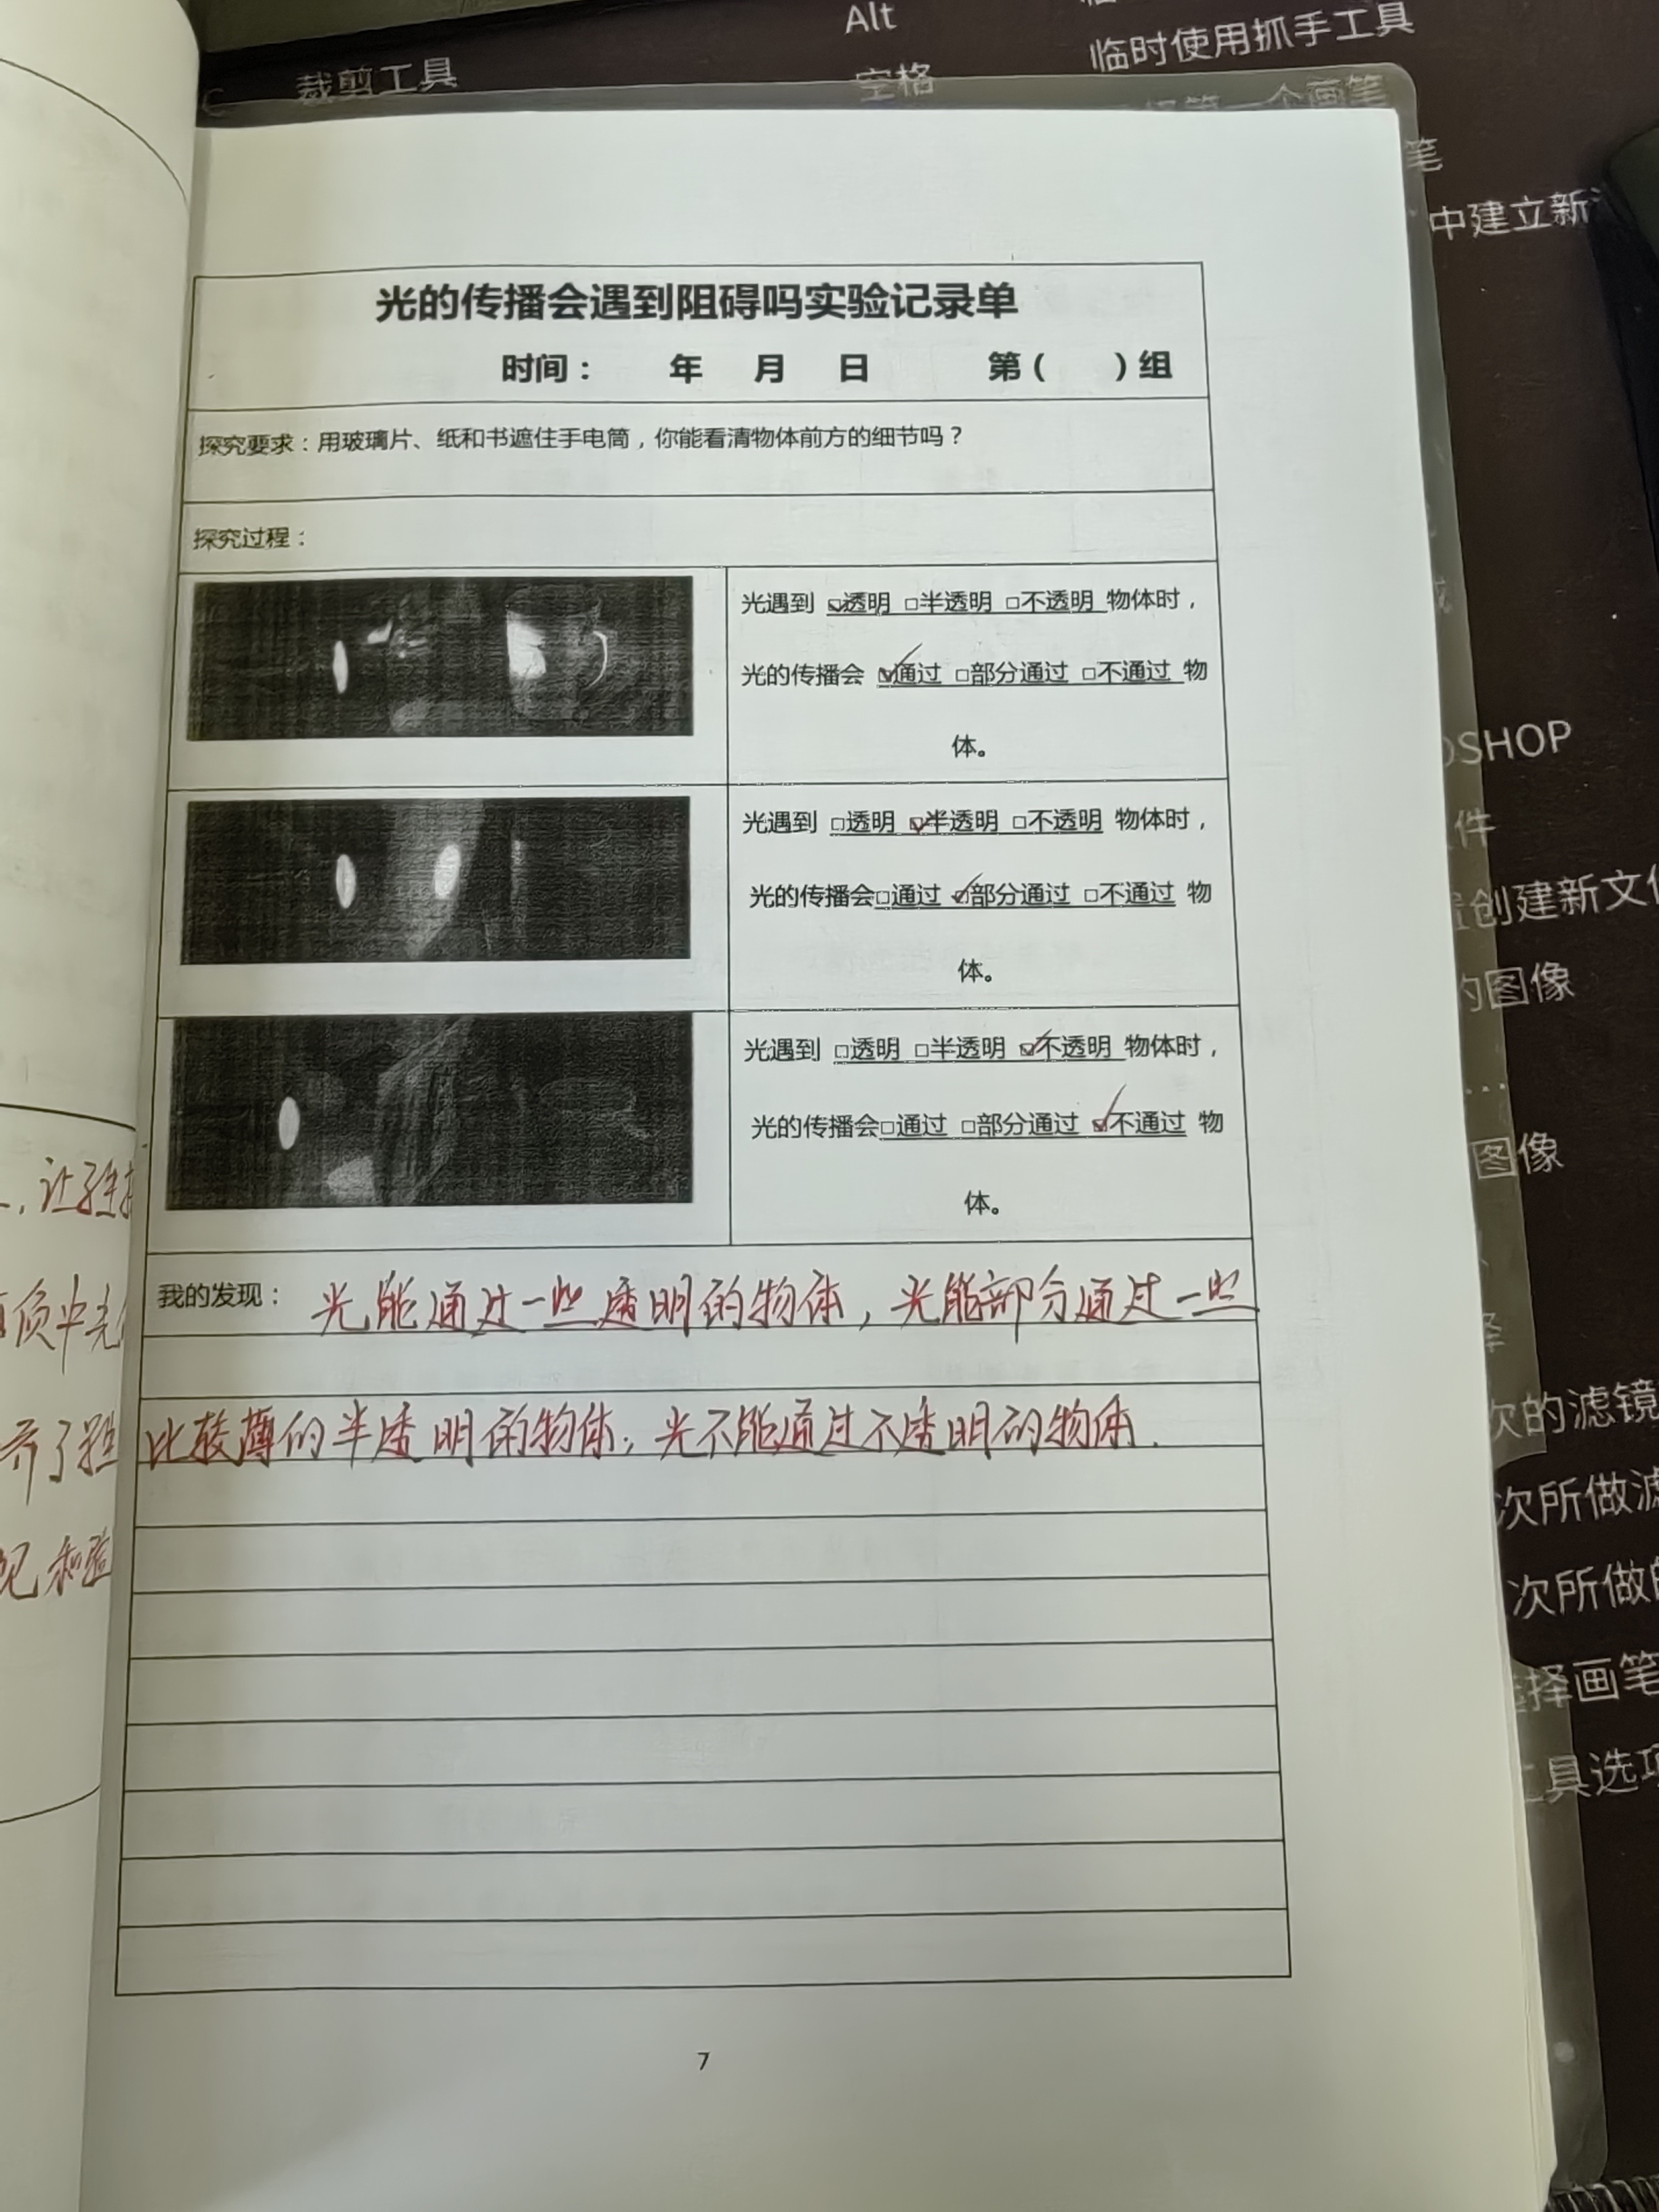 Alt
临时使用抓手工具
裁剪工具
空格
第一个画笔
笔
中建立新
光的传播会遇到阻碍吗实验记录单
时间： 年 月 日 第（ ）组
探究要求：用玻璃片、纸和书遮住手电筒，你能看清物体前方的细节吗？
探究过程：
光遇到 ☑透明 □半透明 □不透明 物体时，
光的传播会 ☑通过 □部分通过 □不通过 物
体。
光遇到 □透明 ☑半透明 □不透明 物体时，
光的传播会□通过 ☑部分通过 □不通过 物
体。
光遇到 □透明 □半透明 ☑不透明 物体时，
光的传播会□通过 □部分通过 ☑不通过 物
体。
我的发现： 光能通过一些透明的物体，光能部分通过一些
比较薄的半透明的物体；光不能通过不透明的物体.
7
OSHOP
件
创建新文
的图像
图像
择
次的滤镜
次所做滤
次所做的
选择画笔
工具选项